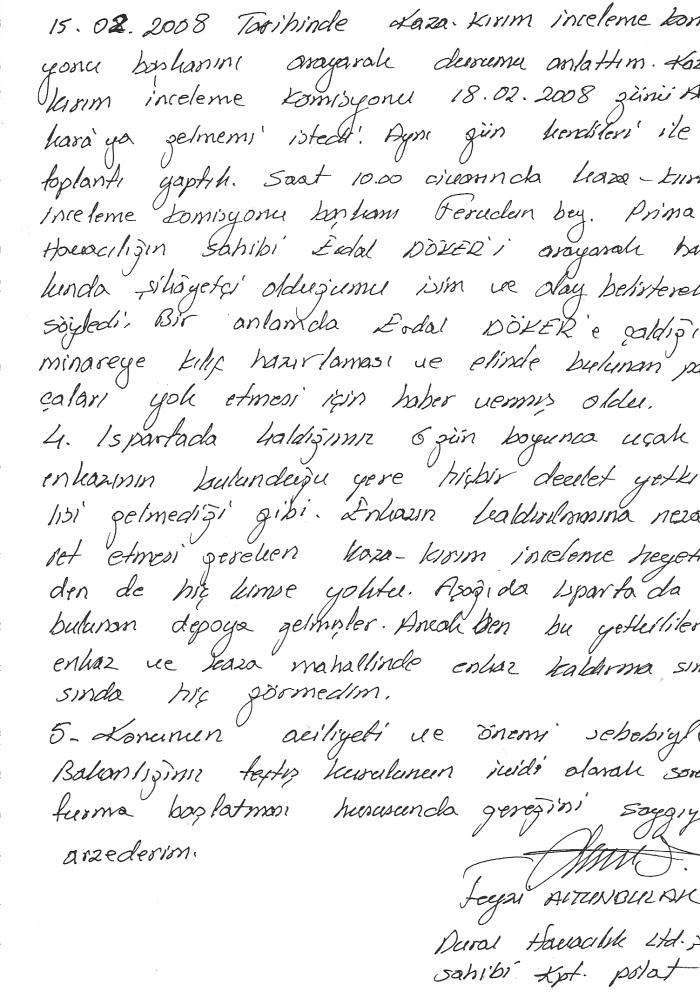 15.02.2008 Tarihinde Kaza-kırım inceleme kom
yonu başkanını arayarak durumu anlattım. Kaz
kırım inceleme komisyonu 18.02.2008 günü A
kara'ya gelmemi istedi. Aynı gün kendileri ile
toplantı yaptık. Saat 10.00 civarında kaza-kırı
inceleme komisyonu başkanı Ferudun bey. Prima
Havacılığın sahibi Erdal DÖKER'i arayarak ha
kında şikâyetçi olduğumu isim ve olay belirterek
söyledi. Bir anlamda Erdal DÖKER'e çaldığı
minareye kılıf hazırlaması ve elinde bulunan pa
çaları yok etmesi için haber vermiş oldu.
4. Ispartada kaldığımız 6 gün boyunca uçak
enkazının bulunduğu yere hiçbir devlet yetki
lisi gelmediği gibi. Enkazın kaldırılmasına neza
ret etmesi gereken kaza-kırım inceleme heyeti
den de hiç kimse yoktu. Aşağıda Isparta da
bulunan depoya gelmişler. Ancak ben bu yetkililer
enkaz ve kaza mahallinde enkaz kaldırma sıra
sında hiç görmedim.
5- Konunun aciliyeti ve önemi sebebiyle
Bakanlığınız teftiş kurulunun ivedi olarak soru
turma başlatması hususunda gereğini saygıy
arzederim.
Feyzi ALTUNBULAK
Dural Havacılık Ltd.Ş
sahibi Kpt. pilot